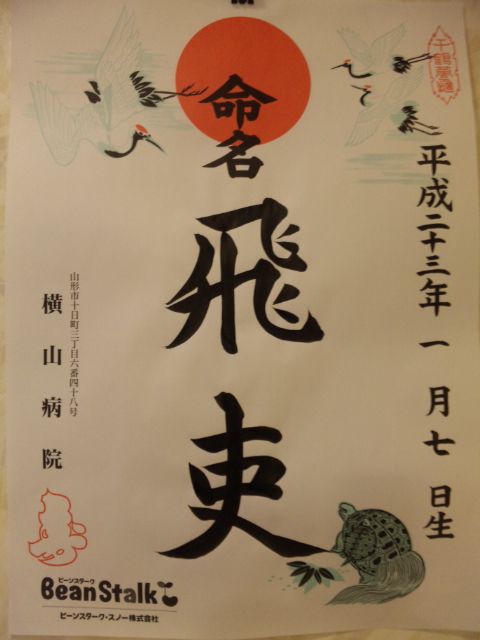 千鶴萬亀
平成二十三年一月七日生
命名
飛吏
山形市十日町三丁目六番四十八号
横山病院
ビーンスターク
BeanStalk
ビーンスターク・スノー株式会社